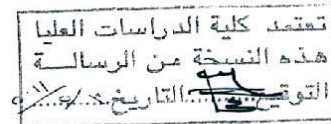 تعتمد كلية الدراسات العليا
هذه النسخة من الرسالــة
التوقيع.......التاريخ